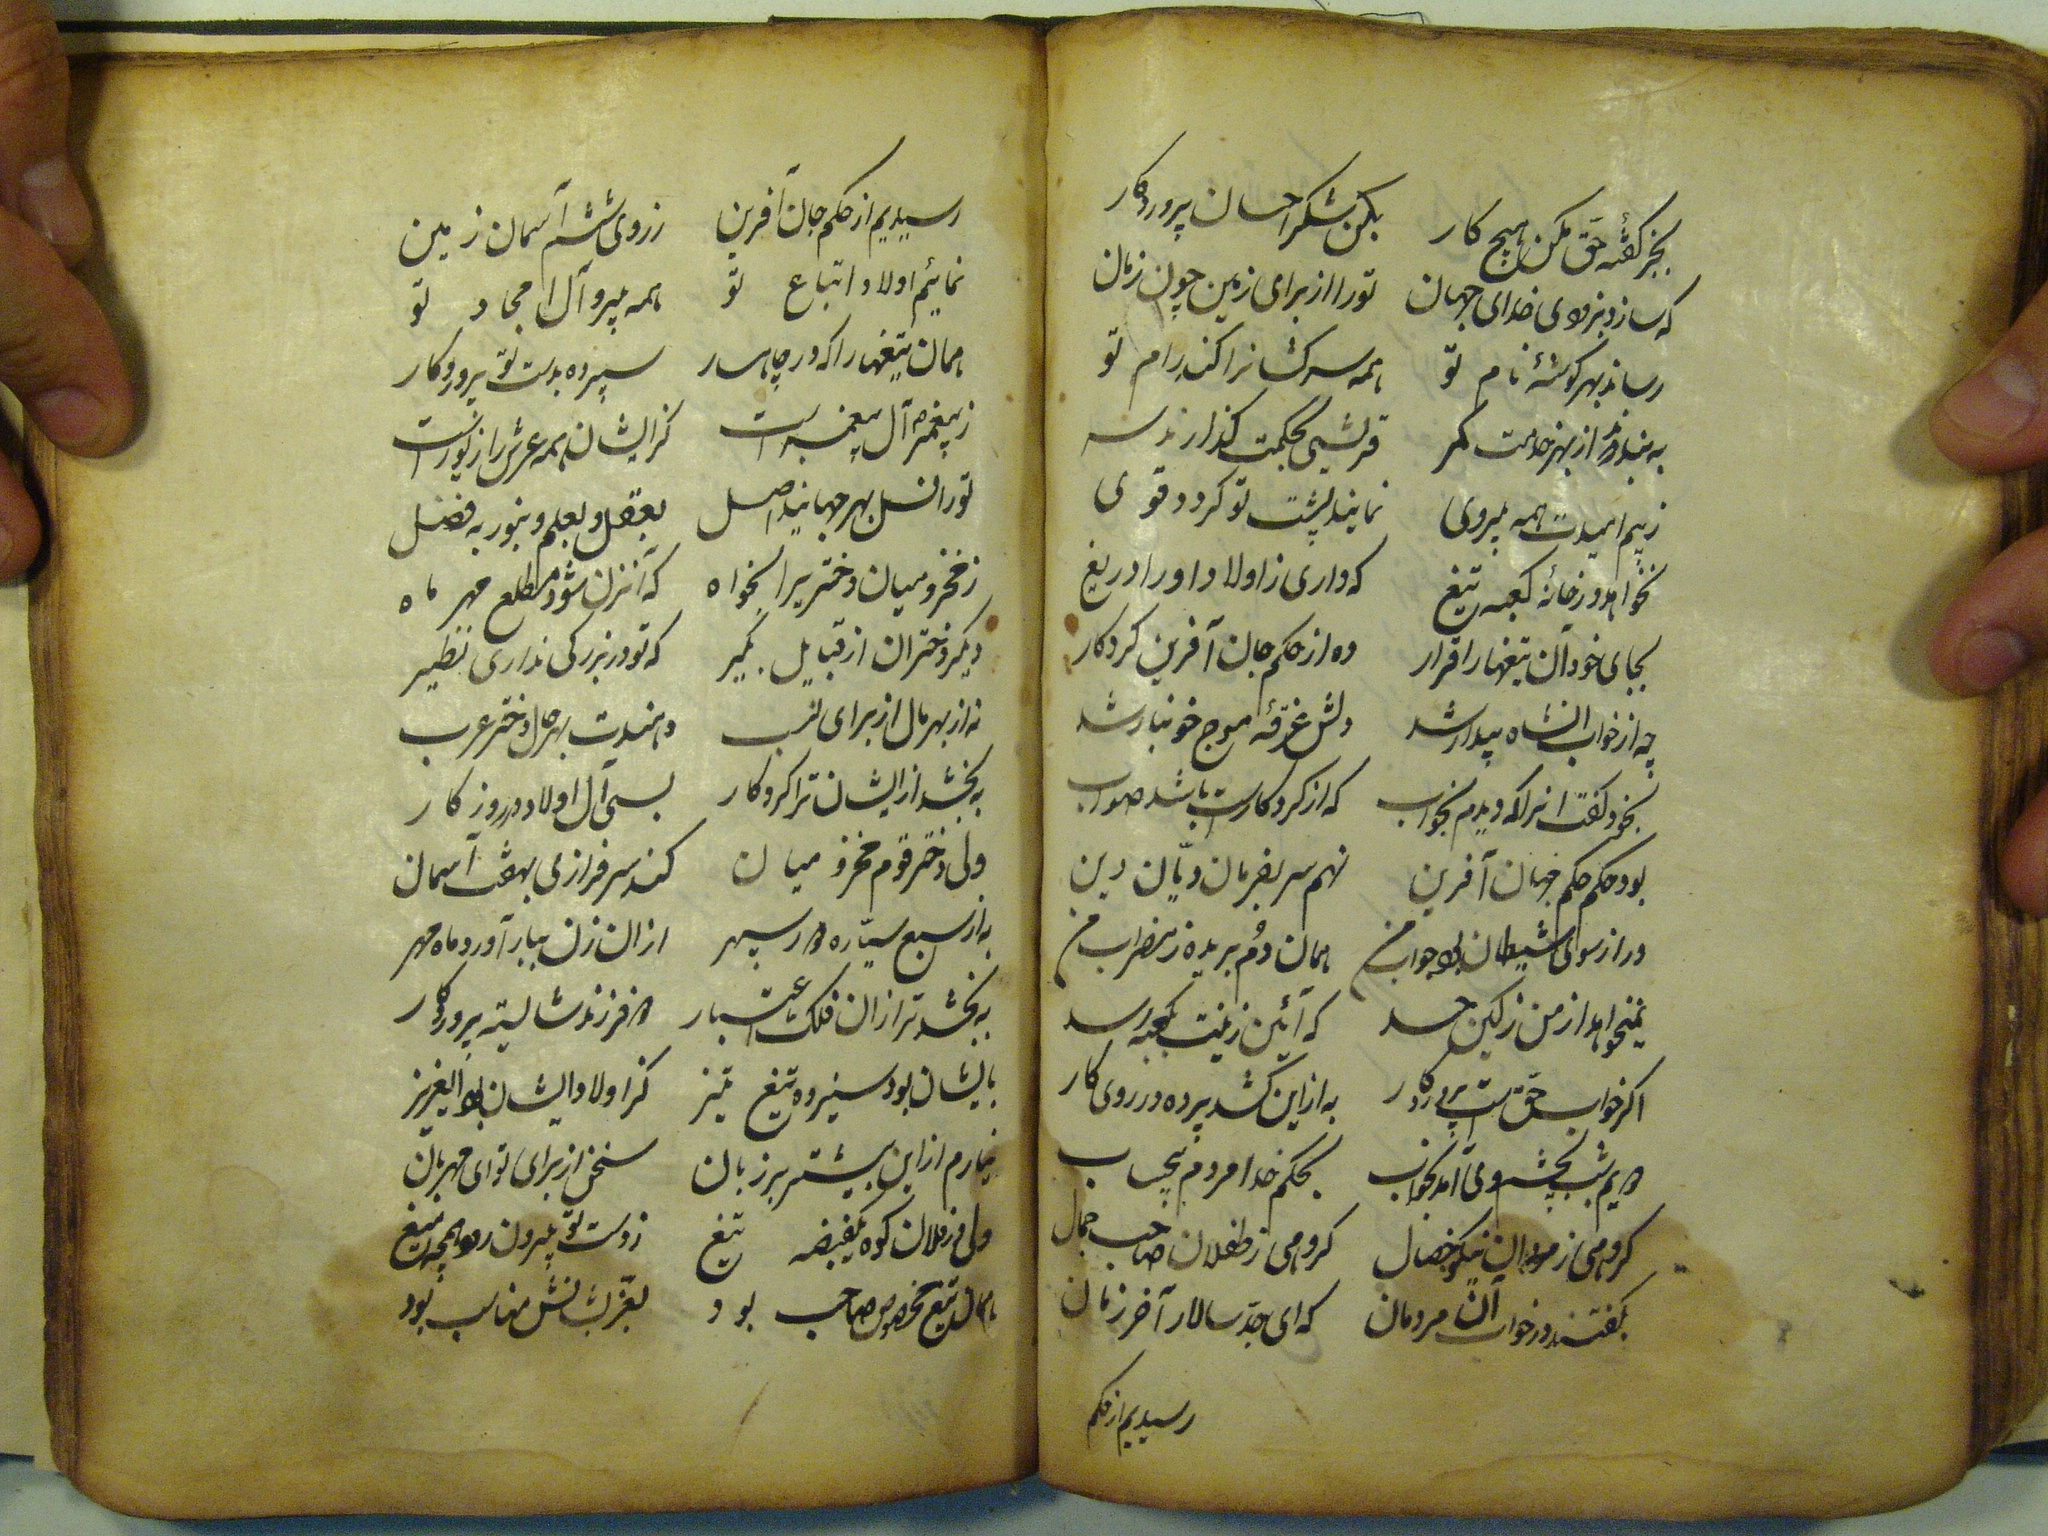 بجز گفتهٔ حق مکن هیچ کار بکن شکر احسان پروردگار
که سازد بزودی خدای جهان تو را از برای زمین چون زمان
رساند بهر گوشهٔ نام تو همه سرکشانرا کند رام تو
به بندند از بهر خدمت کمر قریشی بحکمت گذارند سر
ز بیم امیدت همه پیروی نمایند پشت تو گردد قوی
نخواهد در خانهٔ کعبه تیغ که داری ز اولاد او را دریغ
بجای خود آن تیغها را قرار ده از حکم جان آفرین کردکار
چه از خواب انشاه بیدار شد دلش غرقهٔ موج خونبار شد
بخود گفت انرا که دیدم بخواب که از کردکارست باشد صواب
بود حکم حکم جهان آفرین نهم سر بفرمان دیّان دین
ور از سوی شیطان بود خواب من همان دُم بریده ز من
نمیخواهد از من ز کین حسد که آئین زینت بکعبه رسد
اگر خواب حق است پروردگار به از این کشد پرده در روی کار
دویم شب بچشم ولی آمد بخواب بحکم خدا مردم بیحساب
گروهی ز مردان نیکو خصال گروهی ز طفلان صاحب جمال
بگفتند در خواب آن مردمان که ای جدّ سالار آخر زمان
رسیدیم از حکم
رسیدیم از حکم جان آفرین ز روی ششم آسمان زمین
نمائیم اولاد اتباع تو همه پیرو آل امجاد تو
همان تیغها را که در چاهسار سپرده بدست تو پروردگار
ز پیغمبر و آل پیغمبر است کز ایشان همه عرش را زیور است
تو را نسل بهر جهانیند اصل بعقل و بعلم و بنور به فضل
ز مخزومیان دختریرا بخواه که آنزن شود مطلع مهر ماه
دیگر دختران از قبایل بگیر که تو در بزرگی نداری نظیر
نه از بهر مال از برای نسب دهندت بهر حال دختر عرب
به بخشد از ایشان ترا کردکار بسی آل اولاد در روزکار
ولی دختر قوم مخزومیان کند سرفرازی بهفت آسمان
به از سبع سیّاره در سپهر از ان زن ببار آورد ماه مهر
به بخشد ترا زان فلک اعتبار دو فرزند شایسته پروردگار
بایشان بود سیزده تیغ تیز کز اولاد ایشان بود العزیز
نیارم از این بیشتر بر زبان سخن از برای تو ای مهربان
ولی در فلان کوه یکقبضه تیغ ز دست تو بیرون رود همچه میغ
همان تیغ مخصوص صاحب بود بعزّت شانش مناسب بود